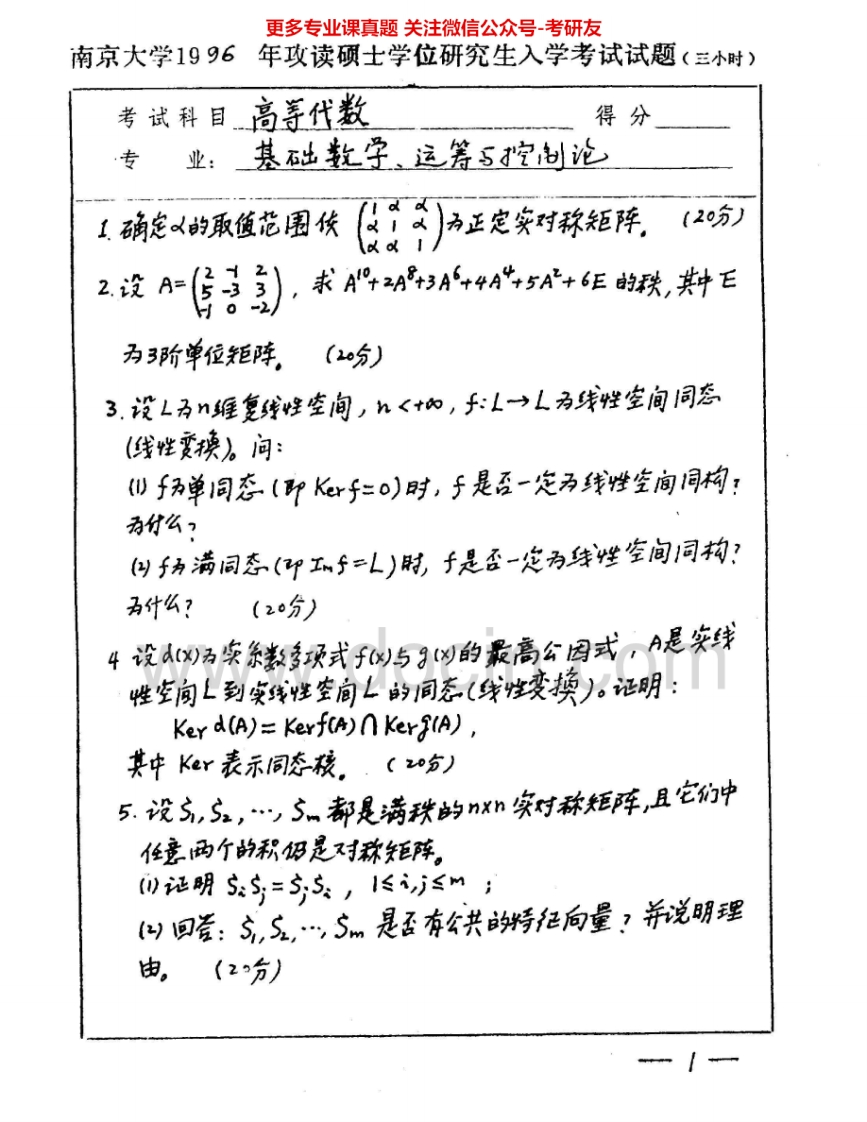 更多专业课真题 关注微信公众号-考研友
南京大学1996 年攻读硕士学位研究生入学考试试题(三小时)
考试科目 高等代数 得分
专 业: 基础数学、运筹与控制论
1. 确定α的取值范围使 (1 α α; α 1 α; α α 1) 为正定实对称矩阵。 (20分)
2. 设 A=(2 -1 2; 5 -3 3; -1 0 -2), 求 A¹⁰+2A⁸+3A⁶+4A⁴+5A²+6E 的秩,其中E
为3阶单位矩阵。 (20分)
3. 设L为n维复线性空间, n<+∞, f:L→L为线性空间同态
(线性变换)。问:
(1) f为单同态(即 Ker f=0)时, f是否一定为线性空间同构?
为什么?
(2) f为满同态(即 Im f=L)时, f是否一定为线性空间同构?
为什么? (20分)
www.docin.com
4 设d(x)为实系数多项式f(x)与g(x)的最高公因式, A是实线
性空间L到实线性空间L的同态(线性变换)。证明:
Ker d(A)=Ker f(A)∩Ker g(A),
其中 Ker 表示同态核。 (20分)
5. 设S₁,S₂,…,Sm都是满秩的n×n实对称矩阵,且它们中
任意两个的积仍是对称矩阵。
(1)证明 SᵢSⱼ=SⱼSᵢ, 1≤i,j≤m;
(2)回答: S₁,S₂,…,Sm是否有公共的特征向量?并说明理
由。 (20分)
— 1 —